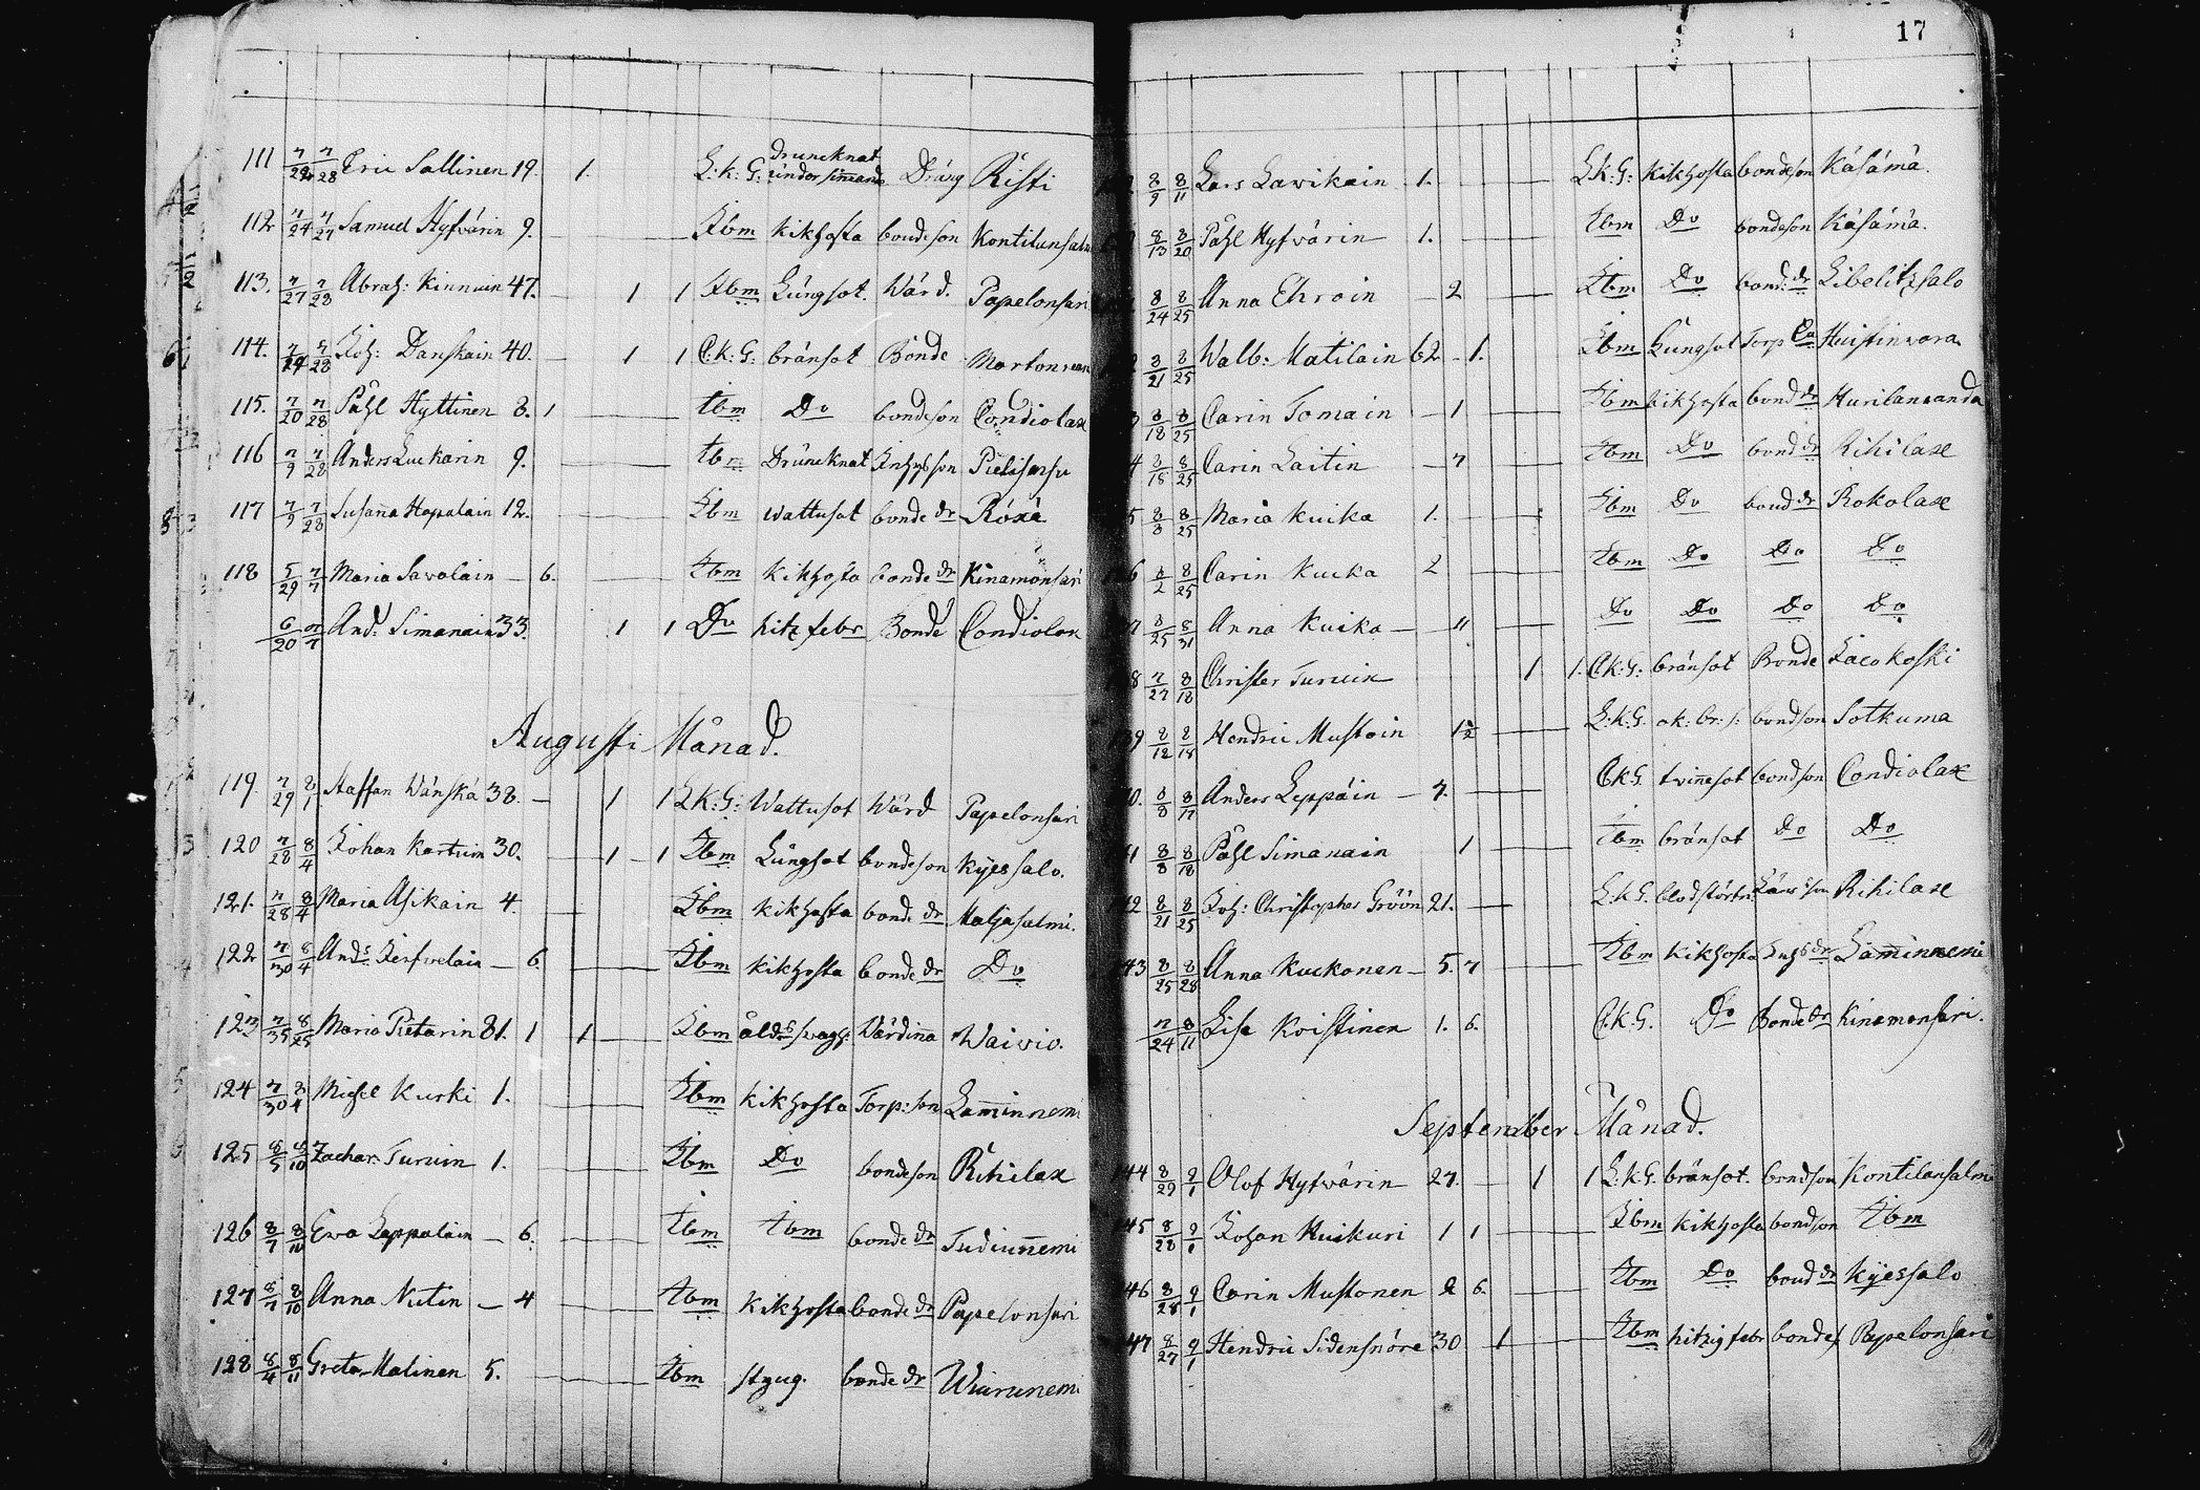 17
111 7/24 7/28 Eric Sallinen 19. 1. L:k:G: druncknat Dräng Risti
112 7/24 7/27 Samuel Hyfvärin 9. Ibm kikhosta bondeson Kontilansalm
113. 7/27 7/28 Abrah: Kinnuin 47. 1 1 Ibm Lungsot. Wärd. Papelonsari
114. 7/24 7/28 Joh: Danskain 40. 1 1 C:k:G: bränsot Bonde
115. 7/20 7/28 Påhl Hyttinen 3. 1 Ibm Do bondeson Condiolax
116 7/9 7/28 Anders Luckarin 9. Ibm Druncknat Inhys son
117 7/9 7/28 Susanna Hapalain 12. Ibm wattusot bonde dr Röxä
118 5/29 7/7 Maria Savolain 6. Ibm kikhosta bonde dr Kinamonsari
6/20 7/7 And: Simanain 33. 1 1 Do hitz febr Bonde Condiolax
Augusti Månad.
119. 7/29 8/1 Staffan Wänskä 38. 1 1 L:k:G: Wattusot Wärd Papelonsari
120 7/28 8/4 Johan Kartuin 30. 1 1 Ibm Lungsot bondeson Kyessalo.
121. 7/28 8/4 Maria Asikain 4. Ibm kikhosta bonde dr Maljasalmi.
122 7/30 8/4 And: 6. Ibm kikhosta bonde dr Do
123 7/35 8/25 Maria Pietarin 81. 1 1 Ibm ålderswagh: Wärdinna Waivio.
124 7/30 8/4 Michel Kurki 1. Ibm kikhosta Torp:son Laminnemi
125 8/5 8/10 Zachar: Turuin 1. Ibm Do bondeson Rihilax
126 8/7 8/10 Eva Leppalain 6. Ibm Ibm bonde dr
127 8/7 8/10 Anna Nutin 4 Ibm kikhosta bonde dr Papelonsari
128 8/4 8/11 Greta Malinen 5. Ibm styng. bonde dr Wiurunemi
8/9 8/11 Lars Lavikain 1. L:k:G: kikhosta bondeson Käsämä.
8/13 8/20 Påhl Hyfvärin 1. Ibm Do bondeson Käsämä.
8/24 8/25 Anna Ehroin 2 Ibm Do bond: dr Libelitzsalo
8/21 8/25 Walb: Matilain 62 1. Ibm Lungsot Torp Huistinvara
8/18 8/25 Carin Tomain 1 Ibm kikhosta bond dr Hurilanranda
4 8/18 8/25 Carin Laitin 7 Ibm Do bond dr Rihilax
5 8/8 8/25 Maria Kuika 1. Ibm Do bond dr Rokolax
6 8/2 8/25 Carin Kuika 2 Ibm Do Do Do
7 8/25 8/31 Anna Kuika 11 Do Do Do Do
8 7/27 8/18 Christer Turuin 1 1. C:k:G: bränsot Bonde Jacokoski
39 8/12 8/18 Hendric Mustoin 1 1/2 L:k:G. ok: br: s: bondson Sotkuma
8/8 8/17 Anders Leppäin 7. C:k:G. tvinesot bondson Condiolax
8/8 8/18 Påhl Simanain 1 Ibm bränsot Do Do
42 8/21 8/25 Joh: Christopher Gröön 21. L:k:G. blodstörtn: Rihilax
43 8/25 8/28 Anna Kuckonen 5. 7 Ibm kikhosta Inhs dr Laminnemi
7/24 8/11 Lisa Koistinen 1. 6. C:k:G. Do Bonde dr Kinamonsari.
September Månad.
144 8/29 9/1 Olof Hyfvärin 27. 1 1 L:k:G. bränsot. bondson Kontilansalm
45 8/28 9/1 Johan Huikuri 1 1 Ibm kikhosta bondson Ibm
46 8/28 9/1 Carin Mustonen 2 6. Ibm Do bond dr Kyessalo
47 8/27 9/1 Hendric Sidensnöre 30 1 Ibm hitzig febr Papelonsari